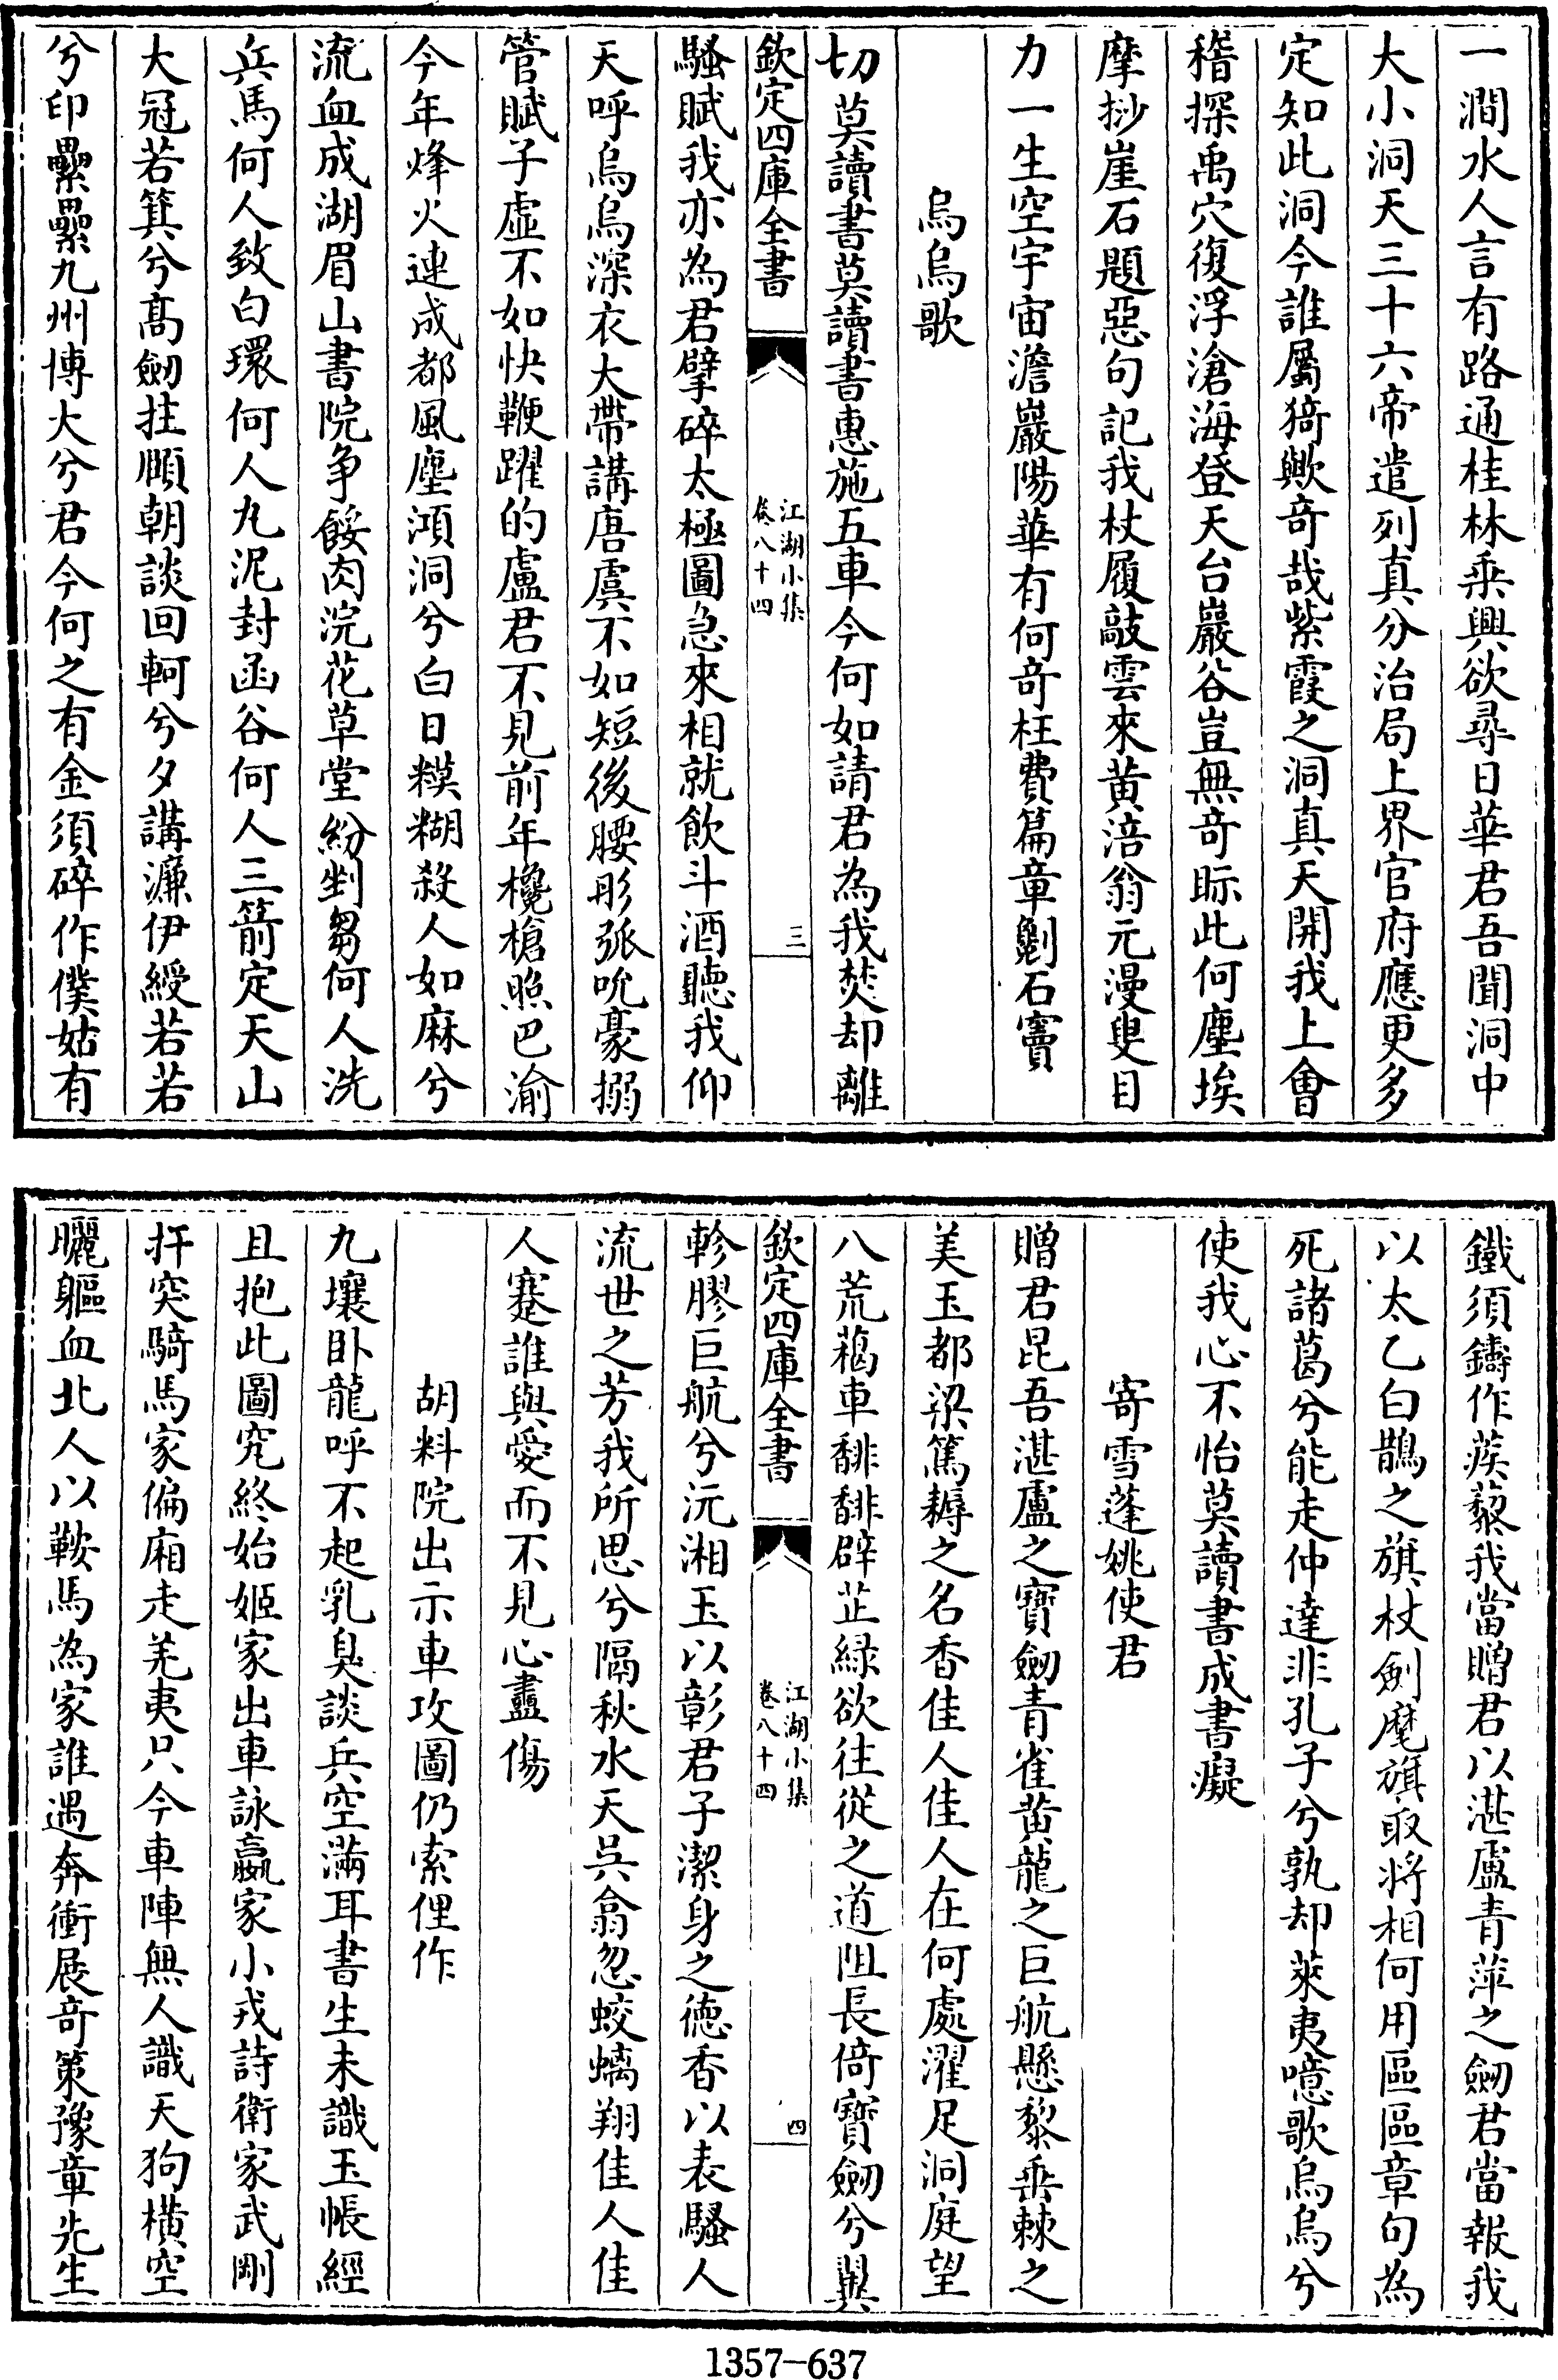 一澗水人言有路通桂林乘興欲尋日華君吾聞洞中
大小洞天三十六帝遣列真分治局上界官府應更多
定知此洞今誰屬猗歟奇哉紫霞之洞真天開我上會
稽探禹穴復浮滄海登天台巖谷豈無奇眎此何塵埃
摩挱崖石題惡句記我杖履敲雲來黄涪翁元漫叟目
力一生空宇宙澹巖陽華有何奇枉費篇章劖石竇
烏烏歌
切莫讀書莫讀書惠施五車今何如請君為我焚却離
欽定四庫全書
江湖小集
卷八十四
三
騷賦我亦為君擘碎太極圖急來相就飲斗酒聽我仰
天呼烏烏深衣大帶講唐虞不如短後腰彤弧吮豪搦
管賦子虛不如快鞭躍的盧君不見前年欃槍照巴渝
今年烽火連成都風塵澒洞兮白日糢糊殺人如麻兮
流血成湖眉山書院争餒肉浣花草堂紛剉芻何人洗
兵馬何人致白環何人丸泥封函谷何人三箭定天山
大冠若箕兮髙劒拄頤朝談回軻兮夕講濂伊綬若若
兮印纍纍九州博大兮君今何之有金須碎作僕姑有
鐵須鑄作蒺藜我當贈君以湛盧青萍之劒君當報我
以太乙白鵲之旗杖劍麾旗取将相何用區區章句為
死諸葛兮能走仲達非孔子兮孰却萊夷噫歌烏烏兮
使我心不怡莫讀書成書癡
寄雪蓬姚使君
贈君昆吾湛盧之寶劒青雀黄龍之巨航懸黎垂棘之
美玉都梁篤耨之名香佳人佳人在何處濯足洞庭望
八荒藒車馡馡辟芷緑欲往從之道阻長倚寶劒兮翼
欽定四庫全書
江湖小集
卷八十四
四
軫膠巨航兮沅湘玉以彰君子潔身之德香以表騷人
流世之芳我所思兮隔秋水天吳翕忽蛟螭翔佳人佳
人蹇誰與愛而不見心盡傷
胡料院出示車攻圖仍索俚作
九壤卧龍呼不起乳臭談兵空滿耳書生未識玉帳經
且抱此圖究終始姬家出車詠嬴家小戎詩衛家武剛
扞突騎馬家偏廂走羌夷只今車陣無人識天狗横空
曬軀血北人以鞍馬為家誰遇奔衝展奇策豫章先生
1357-637